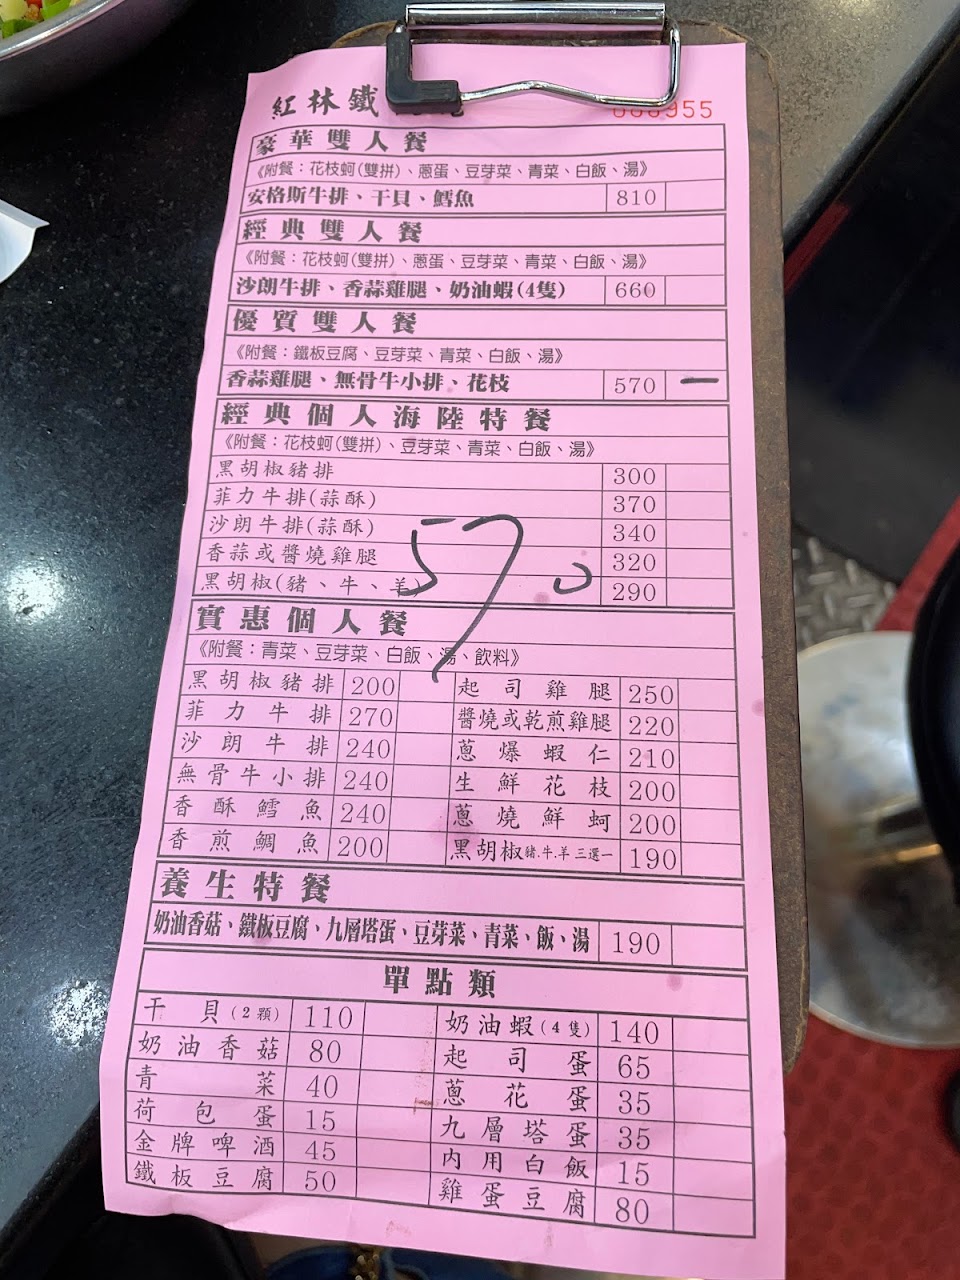 紅林鐵
955
豪華雙人餐
《附餐：花枝蚵(雙拼)、蔥蛋、豆芽菜、青菜、白飯、湯》
安格斯牛排、干貝、鱈魚 810
經典雙人餐
《附餐：花枝蚵(雙拼)、蔥蛋、豆芽菜、青菜、白飯、湯》
沙朗牛排、香蒜雞腿、奶油蝦(4隻) 660
優質雙人餐
《附餐：鐵板豆腐、豆芽菜、青菜、白飯、湯》
香蒜雞腿、無骨牛小排、花枝 570 一
經典個人海陸特餐
《附餐：花枝蚵(雙拼)、豆芽菜、青菜、白飯、湯》
黑胡椒豬排 300
菲力牛排(蒜酥) 370
沙朗牛排(蒜酥) 340
香蒜或醬燒雞腿 320
黑胡椒(豬、牛、羊) 290
570
實惠個人餐
《附餐：青菜、豆芽菜、白飯、湯、飲料》
黑胡椒豬排 200 起司雞腿 250
菲力牛排 270 醬燒或乾煎雞腿 220
沙朗牛排 240 蔥爆蝦仁 210
無骨牛小排 240 生鮮花枝 200
香酥鱈魚 240 蔥燒鮮蚵 200
香煎鯛魚 200 黑胡椒豬.牛.羊三選一 190
養生特餐
奶油香菇、鐵板豆腐、九層塔蛋、豆芽菜、青菜、飯、湯 190
單點類
干貝(2顆) 110 奶油蝦(4隻) 140
奶油香菇 80 起司蛋 65
青菜 40 蔥花蛋 35
荷包蛋 15 九層塔蛋 35
金牌啤酒 45 內用白飯 15
鐵板豆腐 50 雞蛋豆腐 80